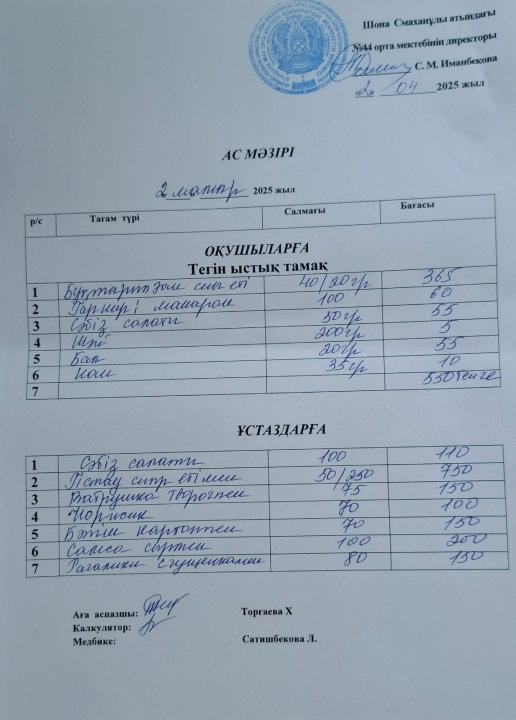 Шона Смаханұлы атындағы
№44 орта мектебінің директоры
С. М. Иманбекова
«2» 04 2025 жыл
АС МӘЗІРІ
2 2025 жыл
р/с Тағам түрі Салмағы Бағасы
ОҚУШЫЛАРҒА
Тегін ыстық тамақ
1 сиыр еті 40/20гр 365
2 Гарнир: макарон 100 60
3 Сәбіз салаты 50гр 55
4 Шәй 200гр 5
5 Бал 20гр 55
6 Нан 35гр 10
7 550 теңге
ҰСТАЗДАРҒА
1 Сәбіз салаты 100 110
2 сиыр етімен 50/250 750
3 Ватрушка творогпен 75 150
4 70 100
5 Бәліш картоппен 70 150
6 Самса сырпен 100 200
7 Рагалики сгущенкамен 80 150
Аға аспазшы: Торғаева Х
Калкулятор:
Медбике: Сатишбекова Л.